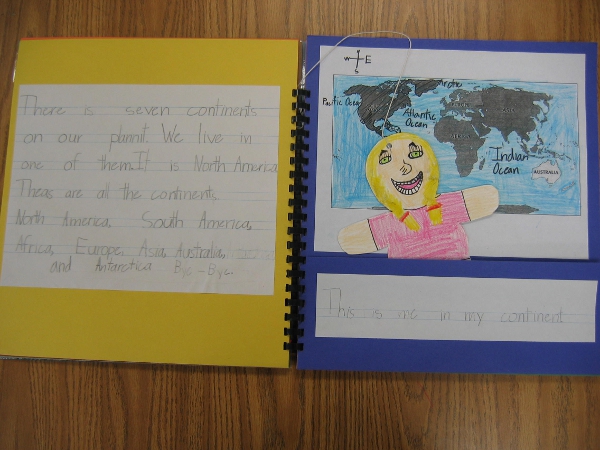 There is seven continents
on our plannit. We live in
one of them. It is North America
Theas are all the continents.
North America, South America,
Africa, Europe, Asia, Australia,
and Antarctica Bye-Bye.
W E
S
Arctic
Pacific Ocean
Atlantic
Ocean
Indian
Ocean
AUSTRALIA
This is me in my continent